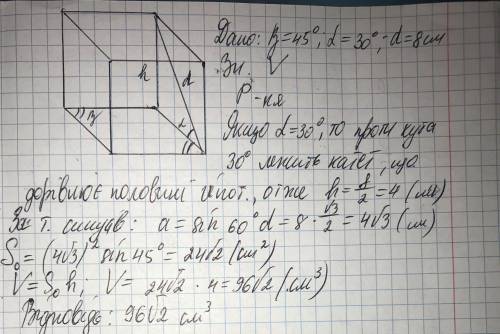 Дано: β=45°; α=30°; d=8см
Зн. V
Р-ня
h d
β α
Якщо α=30°, то проти кута
30° лежить катет, що
дорівнює половині гіпот., отже h = 8/2 = 4 (см)
За т. синусів: a = sin 60° d = 8 · √3/2 = 4√3 (см)
S₀ = (4√3)² sin 45° = 24√2 (см²)
V = S₀ h; V = 24√2 · 4 = 96√2 (см³)
Відповідь: 96√2 см³